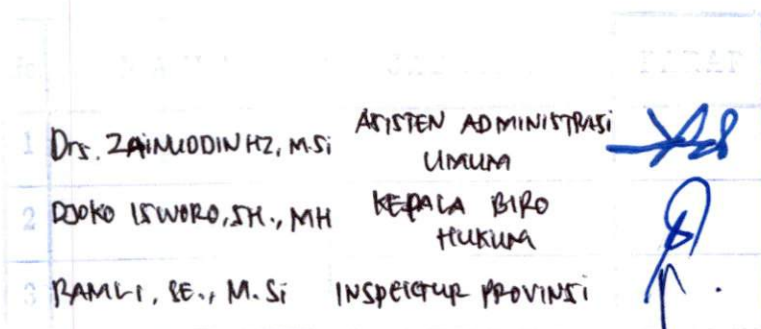 1 Drs. ZAINUDDIN HZ, M.Si ASISTEN ADMINISTRASI
UMUM
2 DJOKO ISWORO, SH., MH KEPALA BIRO
HUKUM
3 RAMLI, SE., M.Si INSPEKTUR PROVINSI